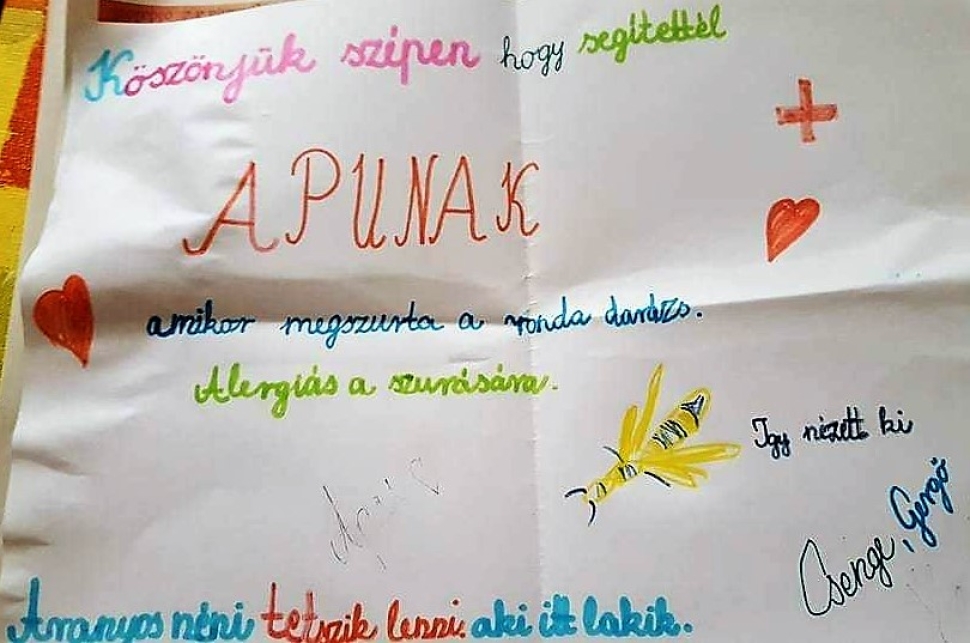 Köszönjük szépen hogy segítettél
APUNAK
amikor megszurta a ronda darázs.
Alergiás a szurására.
Igy nézett ki
Csenge, Gergő
Aranyos néni tetszik lenni. aki itt lakik.